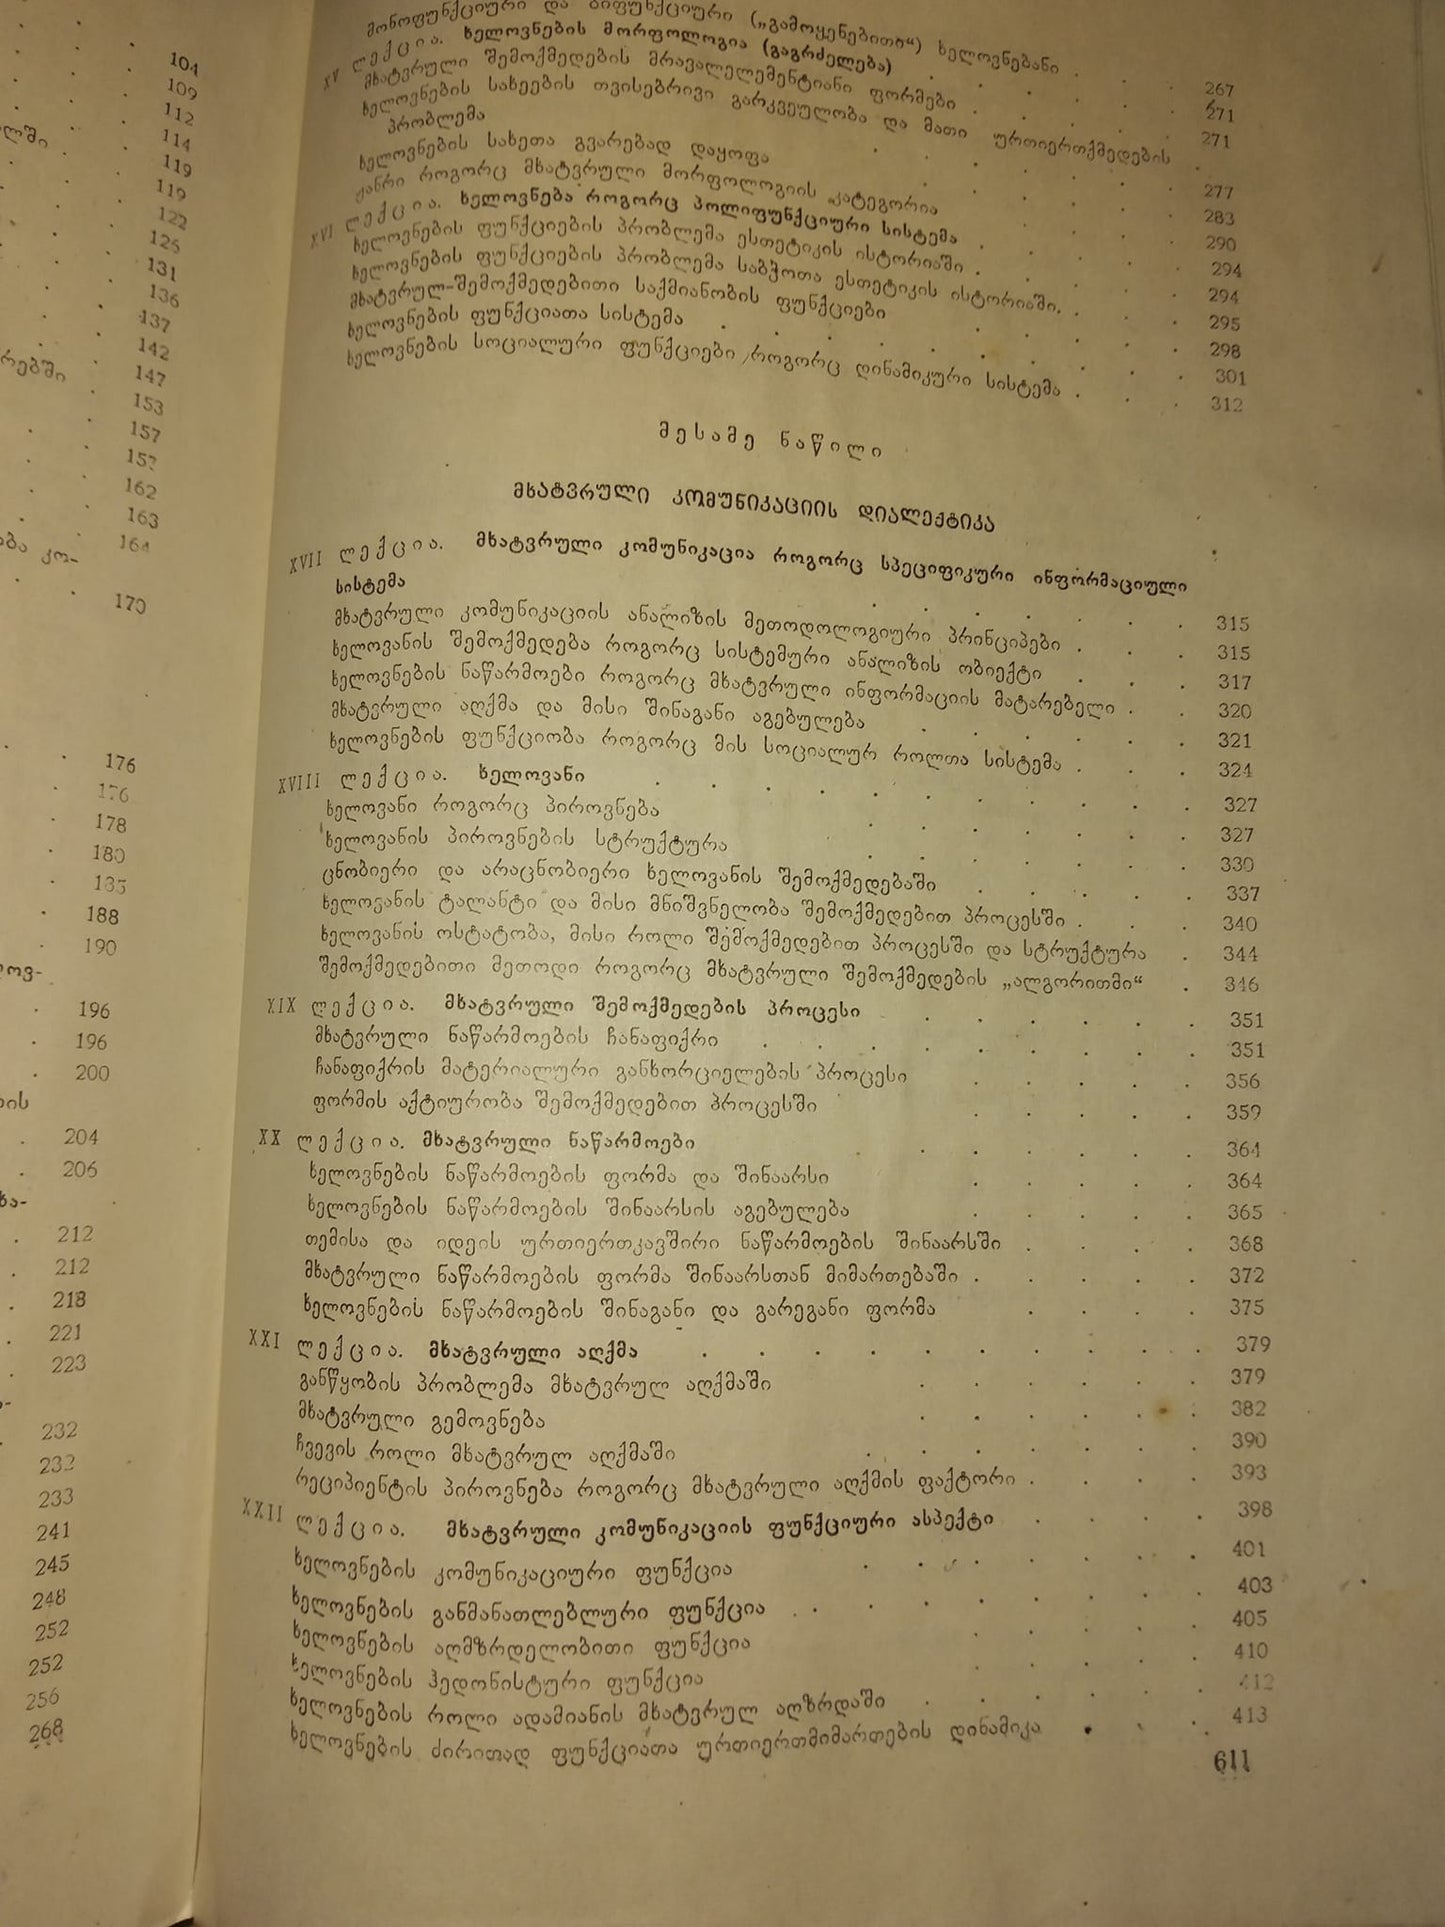 104
109
112
ლში 114
119
119
122
126
131
136
137
142
რებში 147
153
157
157
162
163
ბა კო- 164
170
176
176
178
180
185
188
190
ოვ-
196
196
200
ის
204
206
ხა-
212
212
218
221
223
232
232
233
241
245
248
252
252
256
268
მონოფუნქციური და ბიფუნქციური („გამოყენებითი“) ხელოვნებანი . . . 267
XV ლექცია. ხელოვნების მორფოლოგია (გაგრძელება) . . . . . 271
მხატვრული შემოქმედების მრავალელემენტიანი ფორმები . . . . . 271
ხელოვნების სახეების თვისებრივი გარკვეულობა და მათი ურთიერთქმედების
პრობლემა . . . . . . . 277
ხელოვნების სახეთა გვარებად დაყოფა . . . . . 283
ჟანრი როგორც მხატვრული მორფოლოგიის კატეგორია . . . 290
XVI ლექცია. ხელოვნება როგორც პოლიფუნქციური სისტემა . . . . 294
ხელოვნების ფუნქციების პრობლემა ესთეტიკის ისტორიაში . . . . 294
ხელოვნების ფუნქციების პრობლემა საბჭოთა ესთეტიკის ისტორიაში. . . . 295
მხატვრულ-შემოქმედებითი საქმიანობის ფუნქციები . . . . . 298
ხელოვნების ფუნქციათა სისტემა . . . . . . . 301
ხელოვნების სოციალური ფუნქციები როგორც დინამიკური სისტემა . . . 312
მესამე ნაწილი
მხატვრული კომუნიკაციის დიალექტიკა
XVII ლექცია. მხატვრული კომუნიკაცია როგორც სპეციფიკური ინფორმაციული
სისტემა . . . . . . . 315
მხატვრული კომუნიკაციის ანალიზის მეთოდოლოგიური პრინციპები . . . 315
ხელოვანის შემოქმედება როგორც სისტემური ანალიზის ობიექტი . . . 317
ხელოვნების ნაწარმოები როგორც მხატვრული ინფორმაციის მატარებელი . . 320
მხატვრული აღქმა და მისი შინაგანი აგებულება . . . . . 321
ხელოვნების ფუნქციობა როგორც მის სოციალურ როლთა სისტემა . . . 324
XVIII ლექცია. ხელოვანი . . . . . . . . . . 327
ხელოვანი როგორც პიროვნება . . . . . . . 327
ხელოვანის პიროვნების სტრუქტურა . . . . . . . 330
ცნობიერი და არაცნობიერი ხელოვანის შემოქმედებაში . . . . . 337
ხელოვანის ტალანტი და მისი მნიშვნელობა შემოქმედებით პროცესში . . . 340
ხელოვანის ოსტატობა, მისი როლი შემოქმედებით პროცესში და სტრუქტურა . 344
შემოქმედებითი მეთოდი როგორც მხატვრული შემოქმედების „ალგორითმი“ . 346
XIX ლექცია. მხატვრული შემოქმედების პროცესი . . . . . . 351
მხატვრული ნაწარმოების ჩანაფიქრი . . . . . . . . . 351
ჩანაფიქრის მატერიალური განხორციელების პროცესი . . . . . 356
ფორმის აქტიურობა შემოქმედებით პროცესში . . . . . 359
XX ლექცია. მხატვრული ნაწარმოები . . . . . . . 364
ხელოვნების ნაწარმოების ფორმა და შინაარსი . . . . . 364
ხელოვნების ნაწარმოების შინაარსის აგებულება . . . . . 365
თემისა და იდეის ურთიერთკავშირი ნაწარმოების შინაარსში . . . . 368
მხატვრული ნაწარმოების ფორმა შინაარსთან მიმართებაში . . . . . 372
ხელოვნების ნაწარმოების შინაგანი და გარეგანი ფორმა . . . . 375
XXI ლექცია. მხატვრული აღქმა . . . . . . . . . . 379
განწყობის პრობლემა მხატვრულ აღქმაში . . . . . . 379
მხატვრული გემოვნება . . . . . . 382
ჩვევის როლი მხატვრულ აღქმაში . . . . . . . 390
რეციპიენტის პიროვნება როგორც მხატვრული აღქმის ფაქტორი . . . . 393
XXII ლექცია. მხატვრული კომუნიკაციის ფუნქციური ასპექტი . . . . 398
ხელოვნების კომუნიკაციური ფუნქცია . . . . . . . 401
ხელოვნების განმანათლებლური ფუნქცია . . . . . . . . 403
ხელოვნების აღმზრდელობითი ფუნქცია . . . . . 405
ხელოვნების ჰედონისტური ფუნქცია . . . . . 410
ხელოვნების როლი ადამიანის მხატვრულ აღზრდაში . . . . . . 412
ხელოვნების ძირითად ფუნქციათა ურთიერთმიმართების დინამიკა . . . 413
611